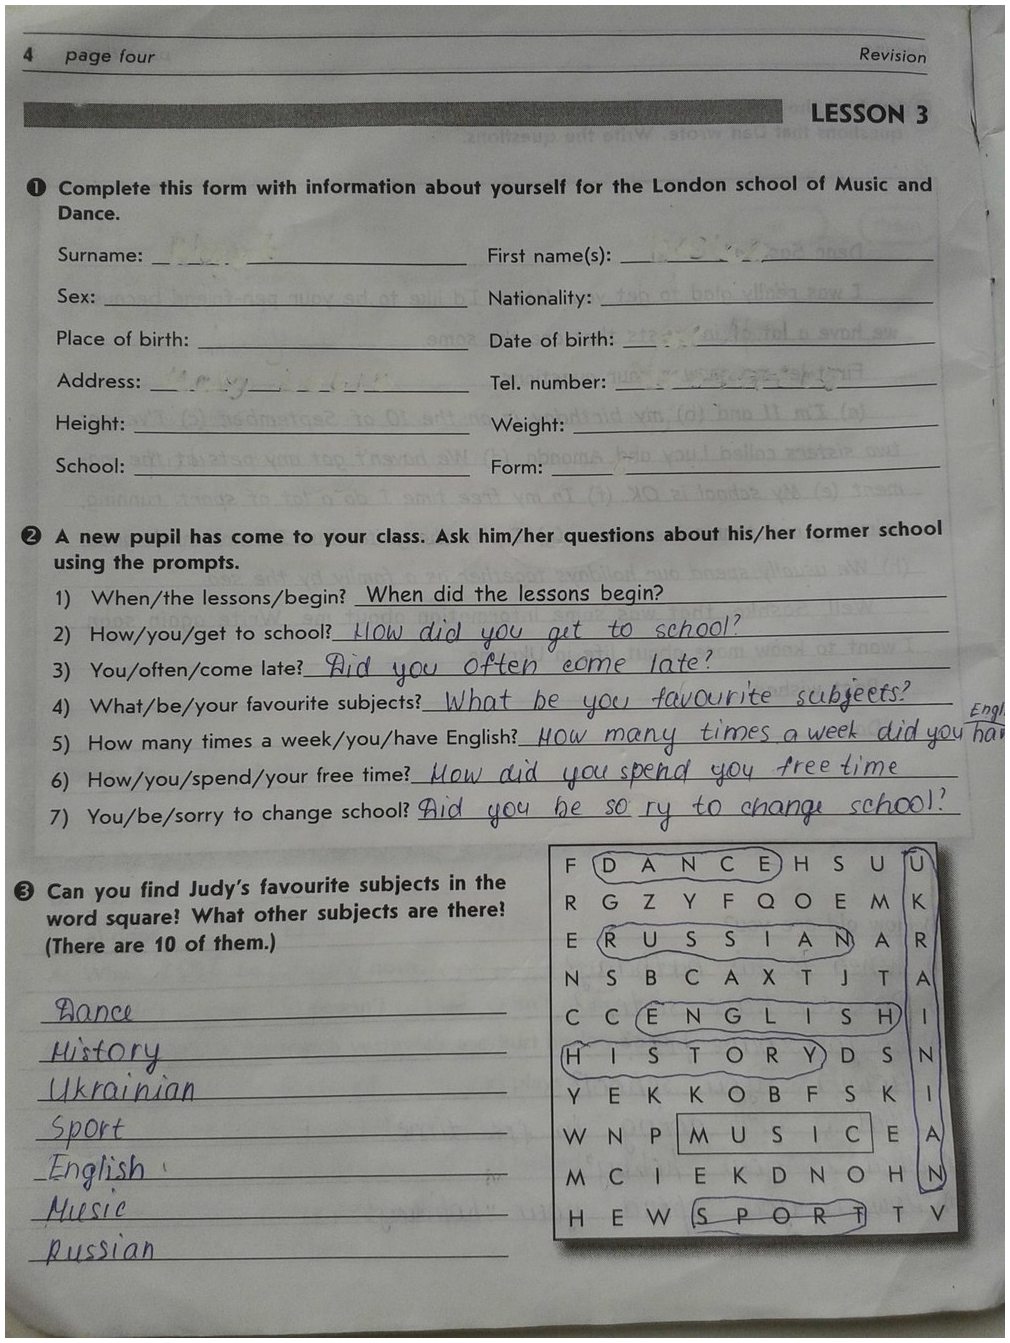 4 page four Revision
LESSON 3
1 Complete this form with information about yourself for the London school of Music and
Dance.
Surname: First name(s):
Sex: Nationality:
Place of birth: Date of birth:
Address: Tel. number:
Height: Weight:
School: Form:
2 A new pupil has come to your class. Ask him/her questions about his/her former school
using the prompts.
1) When/the lessons/begin? When did the lessons begin?
2) How/you/get to school? How did you get to school?
3) You/often/come late? Did you often come late?
4) What/be/your favourite subjects? What be you favourite subjects?
Engl
5) How many times a week/you/have English? How many times a week did you hav
6) How/you/spend/your free time? How did you spend you free time
7) You/be/sorry to change school? Did you be so ry to change school?
3 Can you find Judy's favourite subjects in the
word square? What other subjects are there?
(There are 10 of them.)
Dance
History
Ukrainian
Sport
English
Music
Russian
F D A N C E H S U U
R G Z Y F Q O E M K
E R U S S I A N A R
N S B C A X T J T A
C C E N G L I S H I
H I S T O R Y D S N
Y E K K O B F S K I
W N P M U S I C E A
M C I E K D N O H N
H E W S P O R T T V